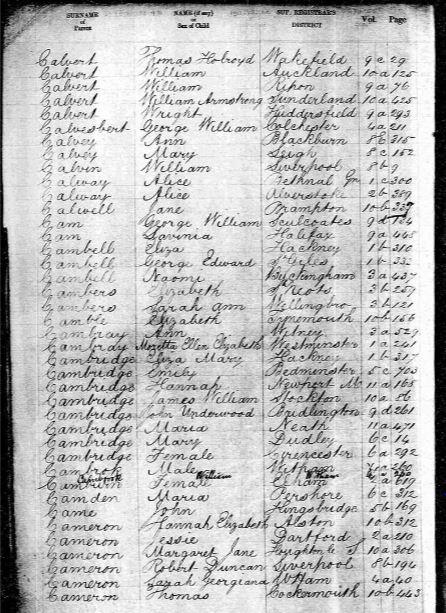 SURNAME of Parent NAME (if any) or Sex of Child SUP. REGISTRAR'S DISTRICT Vol. Page
Calvert Thomas Holroyd Wakefield 9c 29
Calvert William Auckland 10a 125
Calvert William Ripon 9a 76
Calvert William Armstrong Sunderland 10a 425
Calvert Wright Huddersfield 9a 293
Calvesbert George William Colchester 4a 211
Calvey Ann Blackburn 8e 315
Calvey Mary Leigh 8c 152
Calvin William Liverpool 8b 9
Calway Alice Bethnal Gn 1c 300
Calway Alice Alverstoke 2b 389
Calwell Jane Brampton 10b 337
Cam George William Sculcoates 9d 124
Cam Lavinia Halifax 9a 445
Cambell Eliza Hackney 1b 310
Cambell George Edward St Giles 1b 333
Cambell Naomi Buckingham 3a 437
Cambers Elizabeth St Neots 3b 259
Cambers Sarah Ann Wellingbro 3b 121
Camble Elizabeth Tynemouth 10b 156
Cambray Ann Witney 3a 529
Cambray Mozetta Ellen Elizabeth Westminster 1a 241
Cambridge Eliza Mary Hackney 1b 317
Cambridge Emily Bedminster 5c 703
Cambridge Hannah Newport M. 11a 165
Cambridge James William Stockton 10a 86
Cambridge John Underwood Bridlington 9d 261
Cambridge Maria Neath 11a 471
Cambridge Mary Dudley 6c 14
Cambridge Female Cirencester 6a 292
Cambrok Male Witham
Cambrook William
Camburn Female Elham 2a 619
Camden Maria Pershore 6c 312
Came John Kingsbridge 5b 169
Cameron Hannah Elizabeth Alston 10b 312
Cameron Jessie Dartford 2a 210
Cameron Margaret Jane Houghton le S. 10a 306
Cameron Robert Duncan Liverpool 8b 194
Cameron Sarah Georgiana W. Ham 4a 40
Cameron Thomas Cockermouth 10b 443